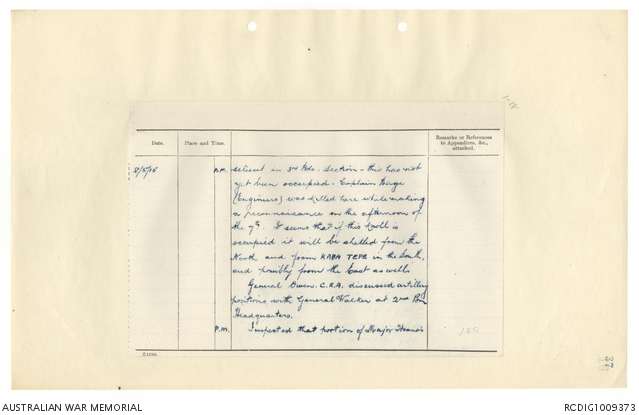 1-18
Date.
Place and Time.
Remarks or References
to Appendices, &c.,
attached.
8/5/15
A.M.
salient in 3rd Bde. Section - this has not
yet been occupied - Captain
(Engineers) was killed here while making
a reconnaissance on the afternoon of
the 7th. It seems that if this knoll is
occupied it will be shelled from the
North and from KABA TEPE in the South,
and possibly from the East as well.
General C.R.A. discussed artillery
positions with General Walker at 2nd
Headquarters.
P.M.
Inspected that portion of Major
AUSTRALIAN WAR MEMORIAL
RCDIG1009373